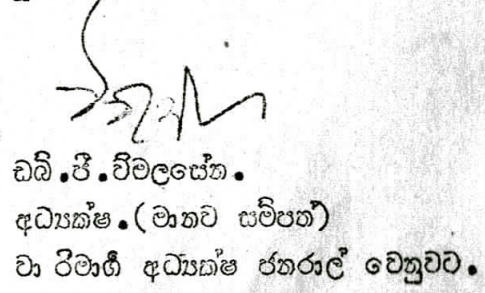 ඩබ්.පී.විමලසේන.
අධ්‍යක්ෂ.(මානව සම්පත්)
වාරිමාර්ග අධ්‍යක්ෂ ජනරාල් වෙනුවට.